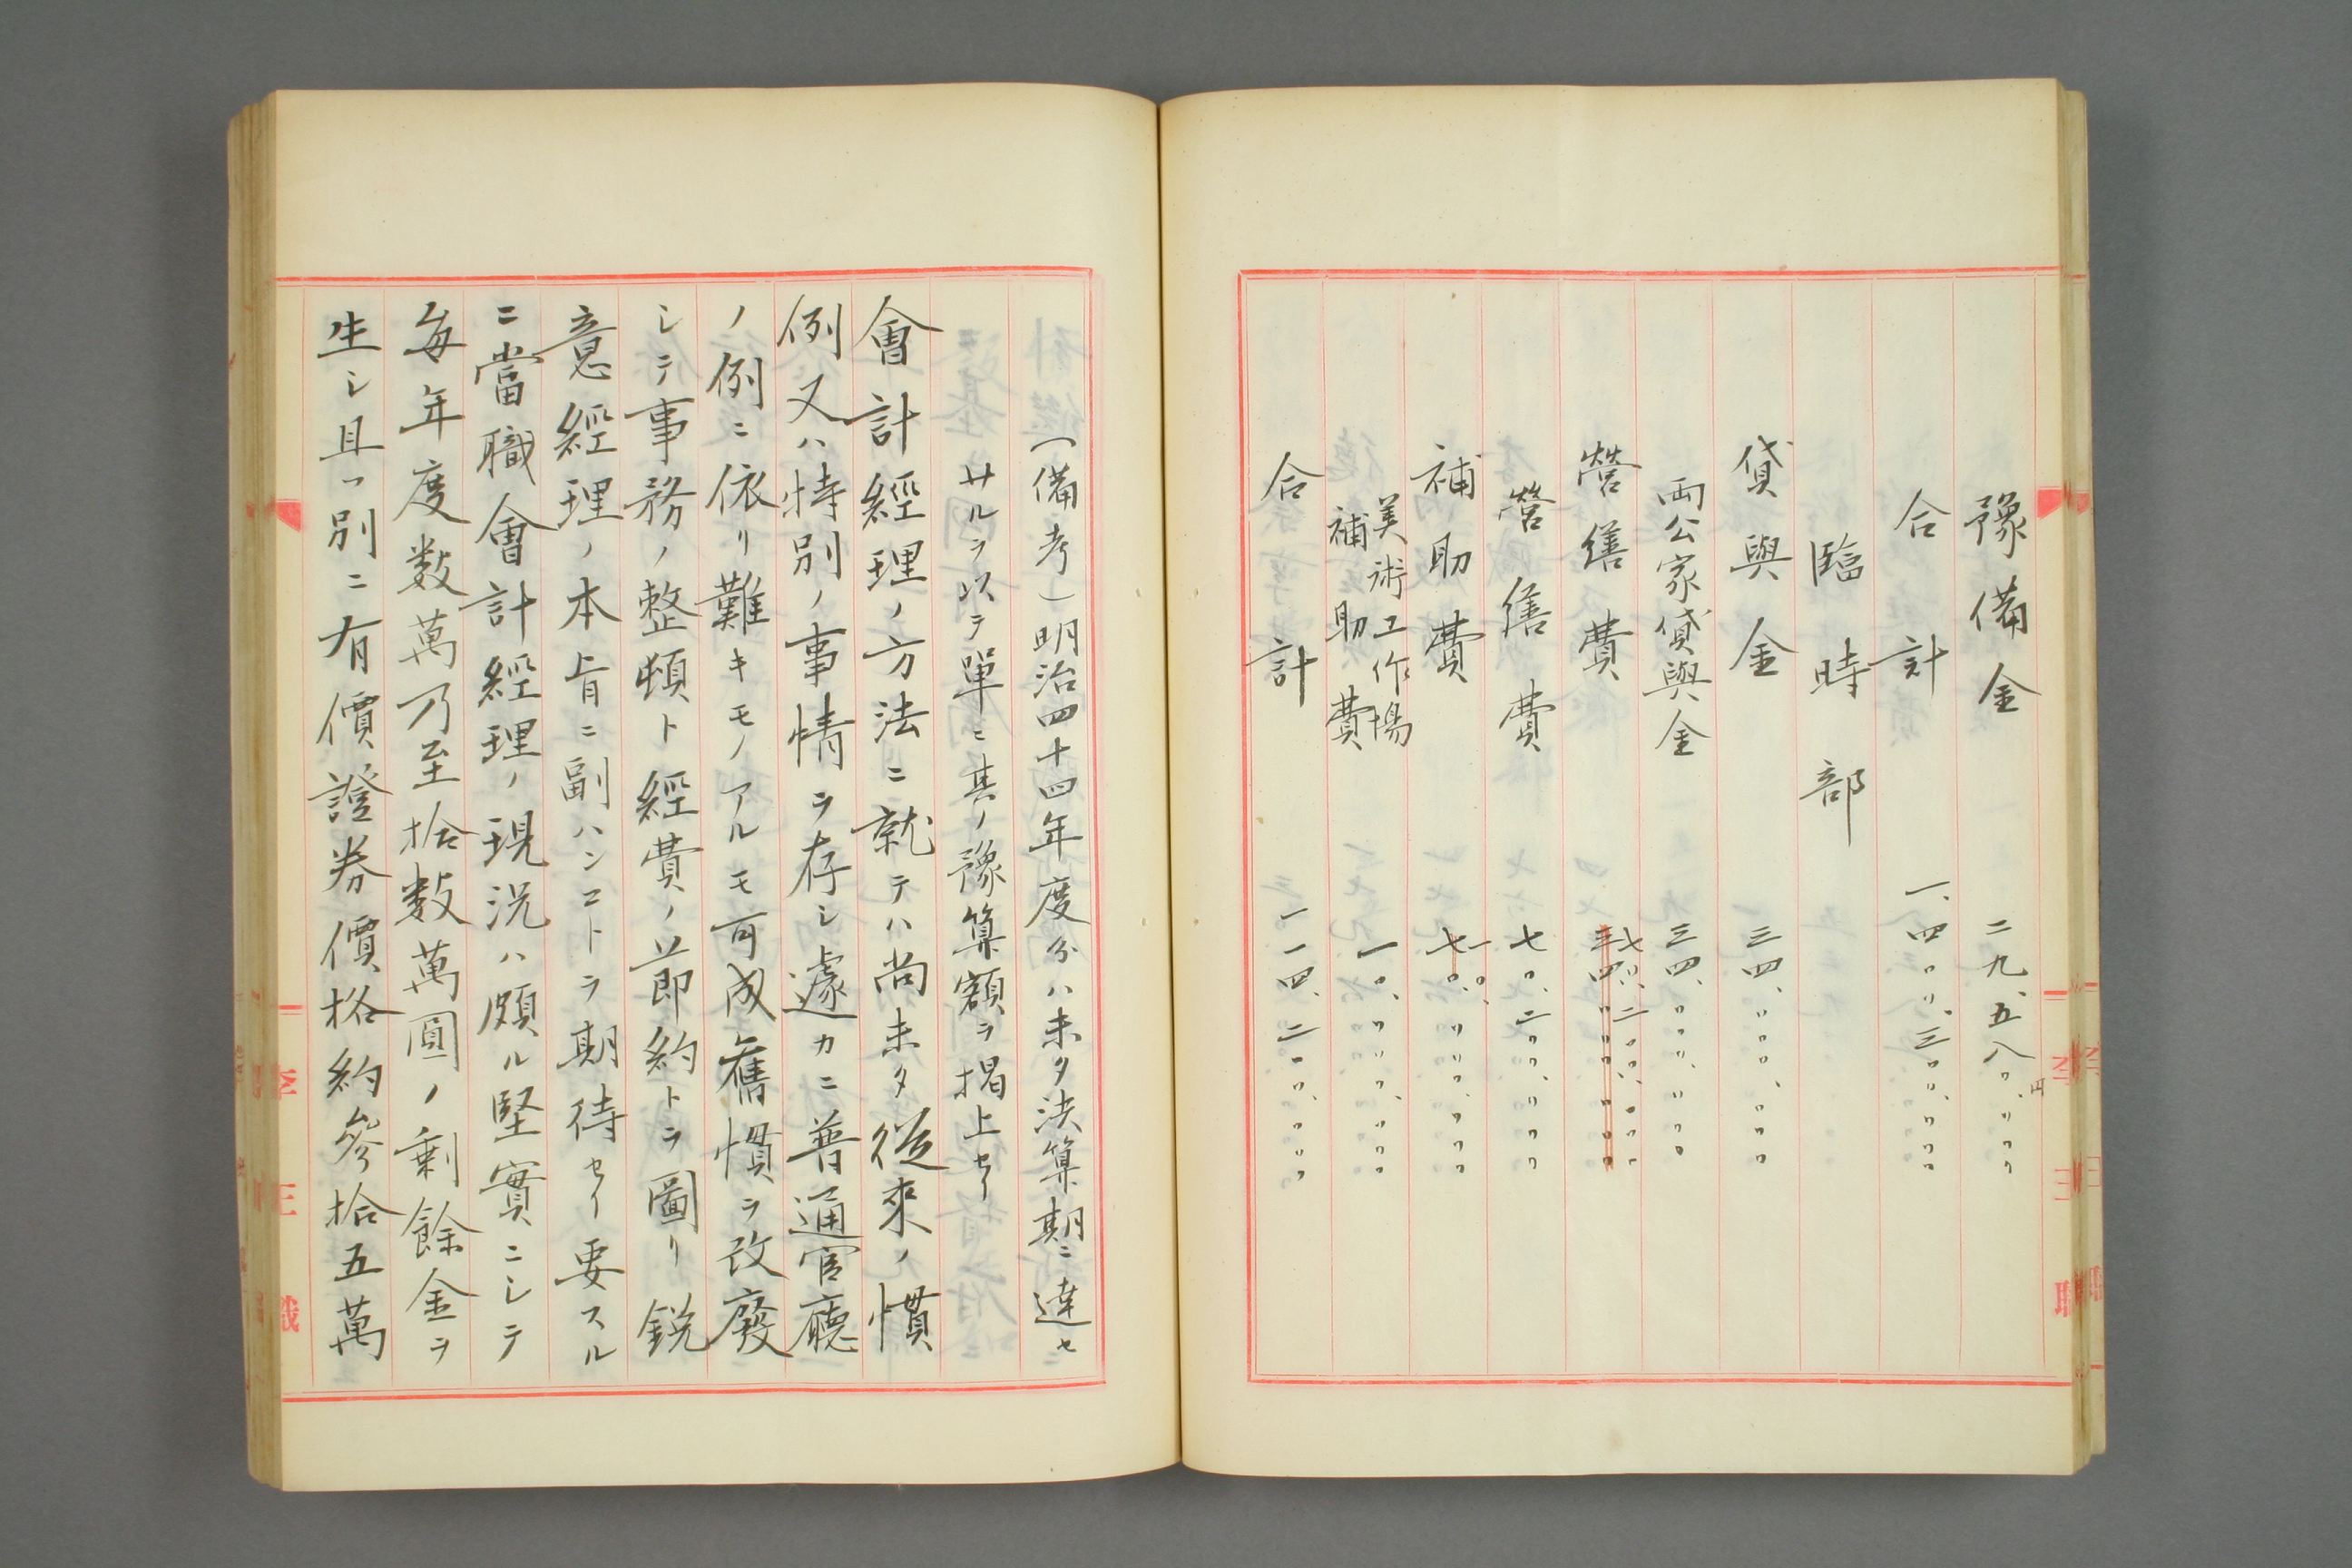 豫備金 二九、五八〇、円〇〇〇
合計 一、四〇〇、三〇〇、〇〇〇
臨時部
貸與金 三四、〇〇〇、〇〇〇
両公家貸與金 三四、〇〇〇、〇〇〇
營繕費 七〇、二〇〇、〇〇〇
營繕費 七〇、二〇〇、〇〇〇
補助費 一〇、〇〇〇、〇〇〇
美術工作場
補助費 一〇、〇〇〇、〇〇〇
合計 一一四、二〇〇、〇〇〇
(備考)明治四十四年度分ハ未タ決算期ニ達セ
サルヲ以テ單ニ其ノ豫算額ヲ掲上セリ
會計經理ノ方法ニ就テハ尚未タ從來ノ慣
例又ハ特別ノ事情ヲ存シ遽カニ普通官廳
ノ例ニ依リ難キモノアルモ可成舊慣ヲ改廢
シテ事務ノ整頓ト經費ノ節約トヲ圖リ鋭
意經理ノ本旨ニ副ハンコトヲ期待セリ要スル
ニ當職會計經理ノ現況ハ頗ル堅實ニシテ
毎年度数萬乃至拾数萬圓ノ剰餘金ヲ
生シ且ツ別ニ有價證券價格約參拾五萬
李王職